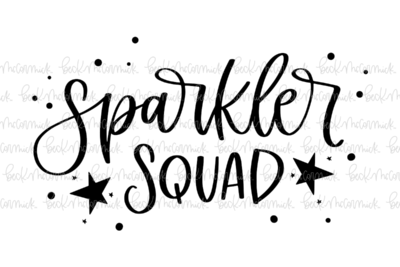 Sparkler
SQUAD